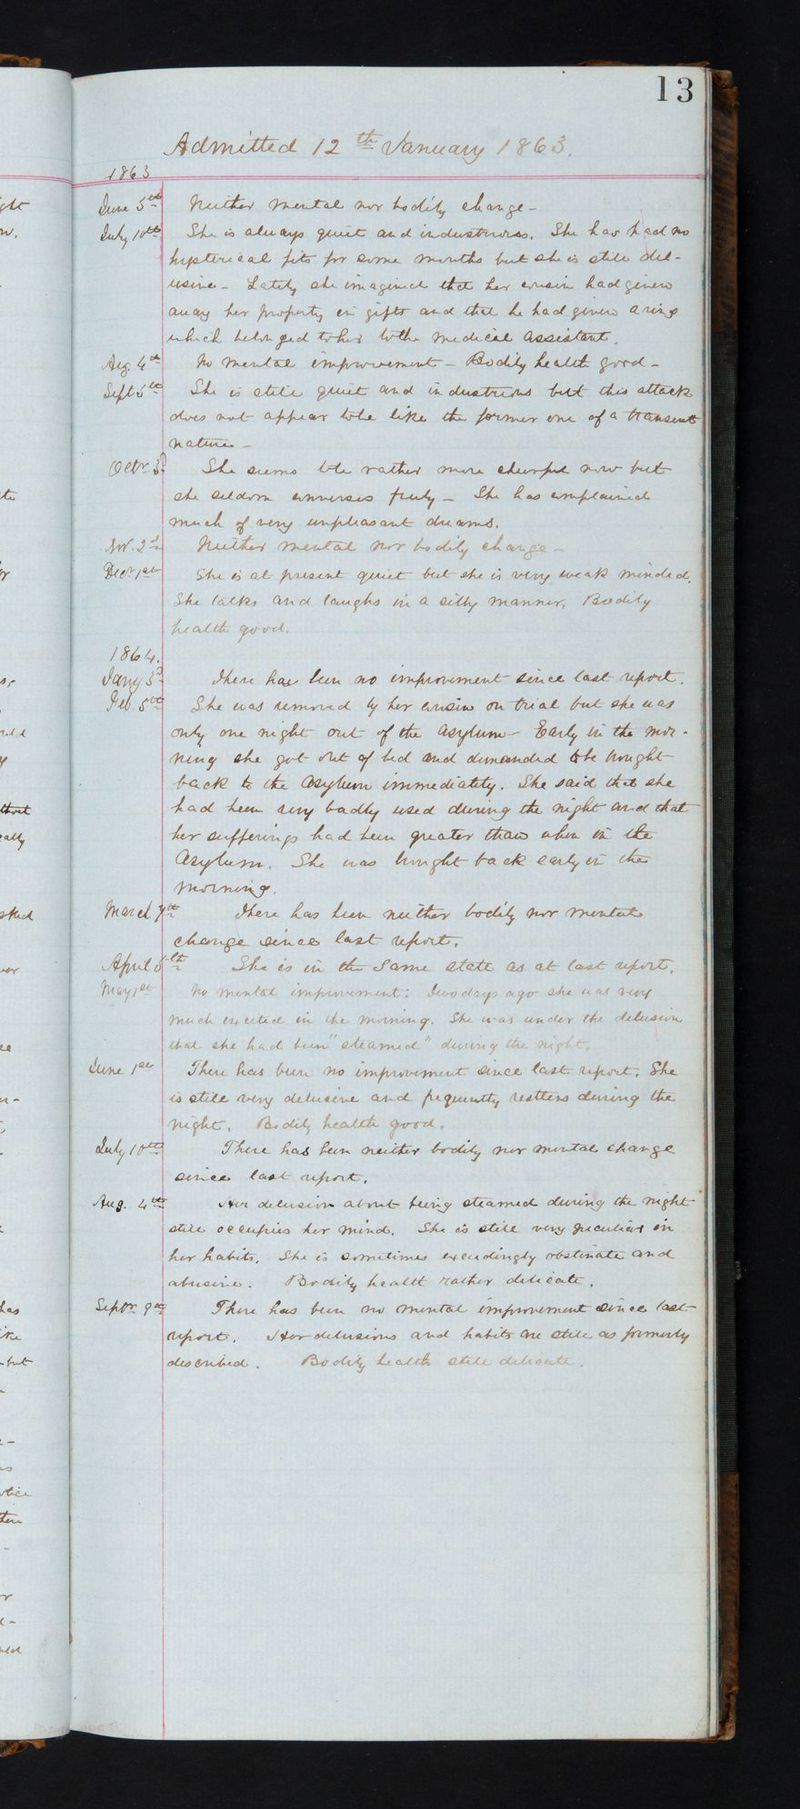 13
Admitted 12th January 1863.
1863
June 5th Neither mental nor bodily change -
July 10th She is always quiet and industrious. She has had no
hysterical fits for some months but she is still del-
usive - Lately she imagined that her cousin had given
away her property in gifts and that he had given a ring
which belonged to her to the medical assistant.
Aug. 4th No mental improvement - Bodily health good -
Sept 5th She is still quiet and industrious but this attack
does not appear to be like the former one of a transient
nature -
Octr 3d She seems to be rather more cheerful now but
she seldom converses freely - She has complained
much of very unpleasant dreams.
Nov. 2d Neither mental nor bodily change -
Decr 1st She is at present quiet but she is very weak minded.
She talks and laughs in a silly manner. Bodily
health good.
1864.
Jany 3d There has been no improvement since last report.
Feb. 5th She was removed by her cousin on trial but she was
only one night out of the asylum - Early in the mor-
ning she got out of bed and demanded to be brought
back to the Asylum immediately. She said that she
had been very badly used during the night and that
her sufferings had been greater than when in the
Asylum. She was brought back early in the
morning.
March 7th There has been neither bodily nor mental
change since last report.
April 6th She is in the same state as at last report.
May 1st No mental improvement. Two days ago she was very
much excited in the morning. She was under the delusion
that she had been "steamed" during the night.
June 1st There has been no improvement since last report. She
is still very delusive and frequently restless during the
night. Bodily health good.
July 10th There has been neither bodily nor mental change
since last report.
Aug. 4th Her delusion about being steamed during the night
still occupies her mind. She is still very peculiar in
her habits. She is sometimes exceedingly obstinate and
abusive. Bodily health rather delicate.
Septr 9th There has been no mental improvement since last
report. Her delusions and habits are still as formerly
described. Bodily health still delicate.